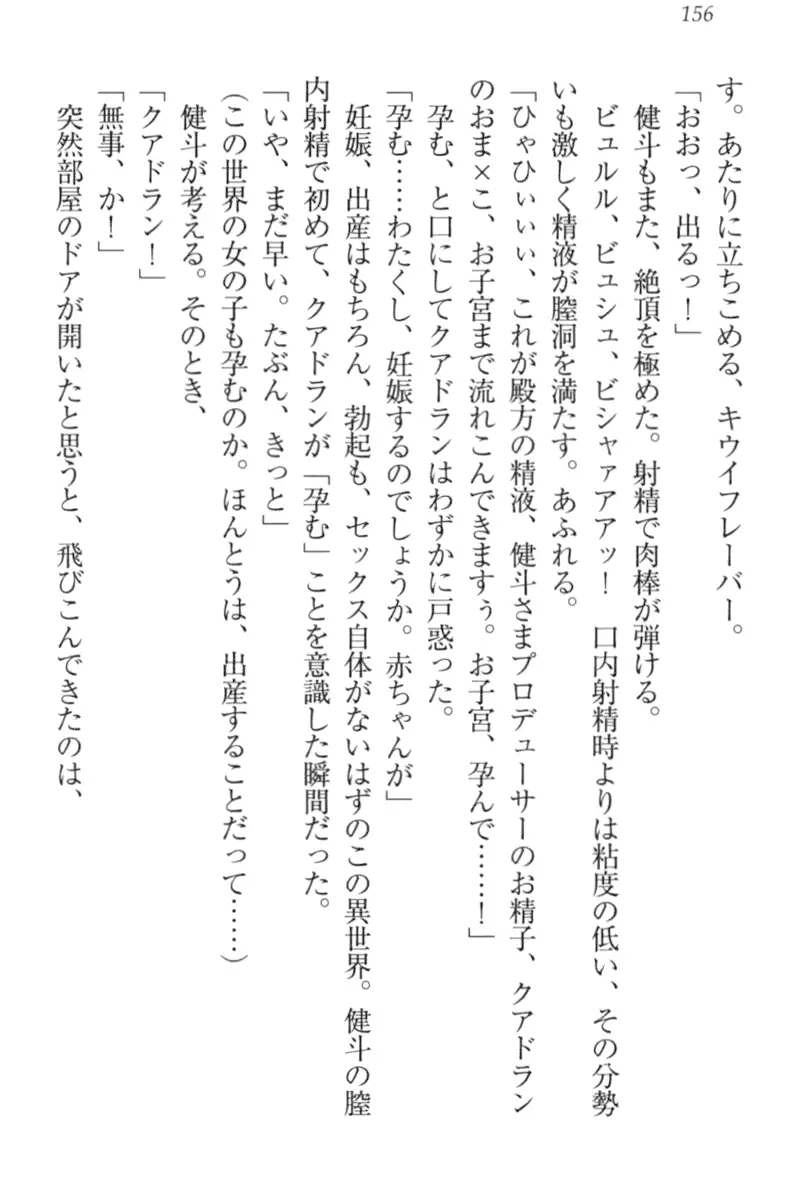 156
す。あたりに立ちこめる、キウイフレーバー。
「おおっ、出るっ！」
健斗もまた、絶頂を極めた。射精で肉棒が弾ける。
ビュルル、ビュシュ、ビシャァアアッ！　口内射精時よりは粘度の低い、その分勢
いも激しく精液が膣洞を満たす。あふれる。
「ひゃひぃぃぃ、これが殿方の精液、健斗さまプロデューサーのお精子、クアドラン
のおま×こ、お子宮まで流れこんできますぅ。お子宮、孕んで……！」
孕む、と口にしてクアドランはわずかに戸惑った。
「孕む……わたくし、妊娠するのでしょうか。赤ちゃんが」
妊娠、出産はもちろん、勃起も、セックス自体がないはずのこの異世界。健斗の膣
内射精で初めて、クアドランが「孕む」ことを意識した瞬間だった。
「いや、まだ早い。たぶん、きっと」
（この世界の女の子も孕むのか。ほんとうは、出産することだって……）
健斗が考える。そのとき、
「クアドラン！」
「無事、か！」
突然部屋のドアが開いたと思うと、飛びこんできたのは、